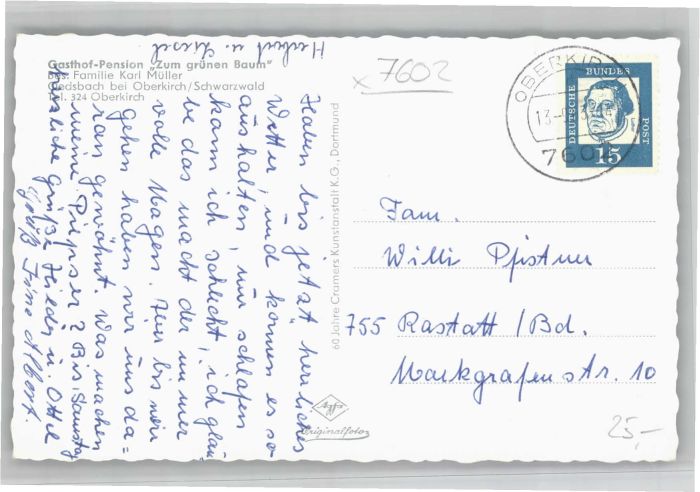 Gasthof-Pension „Zum grünen Baum"
Bes. Familie Karl Müller
bei Oberkirch/Schwarzwald
Tel. 324 Oberkirch
Haben bis jetzt herrliches
Wetter, und können es so
aushalten, nur schlafen
kann ich schlecht, ich glau
be das macht der immer
volle Magen. Hier bis wir
gehen haben wir uns da=
ran gewöhnt. Was machen
meine Piepser? Bis Samstag
herzliche Grüße Frieder u. Ottel
Gruß Albert.
Herbert u. Liesel
60 Jahre Cramers Kunstanstalt K.G., Dortmund
Agfa
Originalfoto
x 7602
OBERKIRCH
13.
7602
DEUTSCHE BUNDESPOST
15
Fam.
Willi Pfistner
755 Rastatt /Bd.
Markgrafenstr. 10
25,-